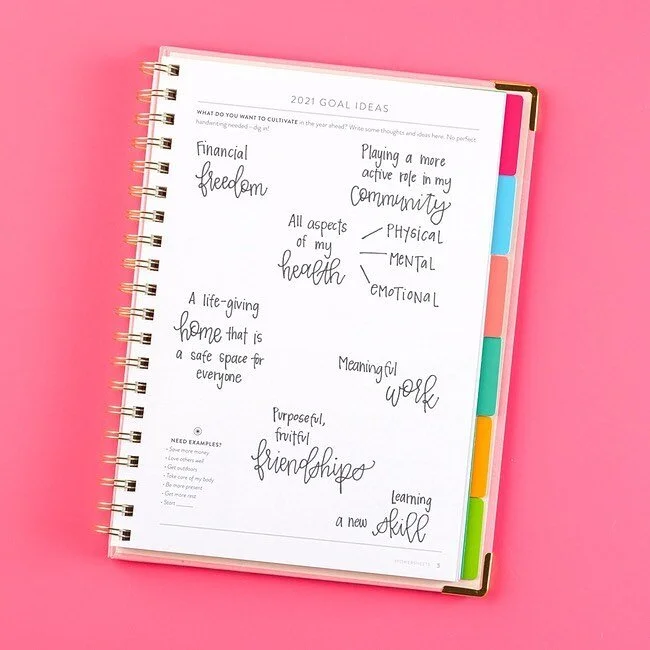 2021 GOAL IDEAS
WHAT DO YOU WANT TO CULTIVATE in the year ahead? Write some thoughts and ideas here. No perfect
handwriting needed—dig in!
Financial
freedom
Playing a more
active role in my
community
All aspects
of my
health
PHYSICAL
MENTAL
EMOTIONAL
A life-giving
home that is
a safe space for
everyone
Meaningful
work
Purposeful,
fruitful
friendships
NEED EXAMPLES?
• Save more money
• Love others well
• Get outdoors
• Take care of my body
• Be more present
• Get more rest
• Start ______
Learning
a new skill
3